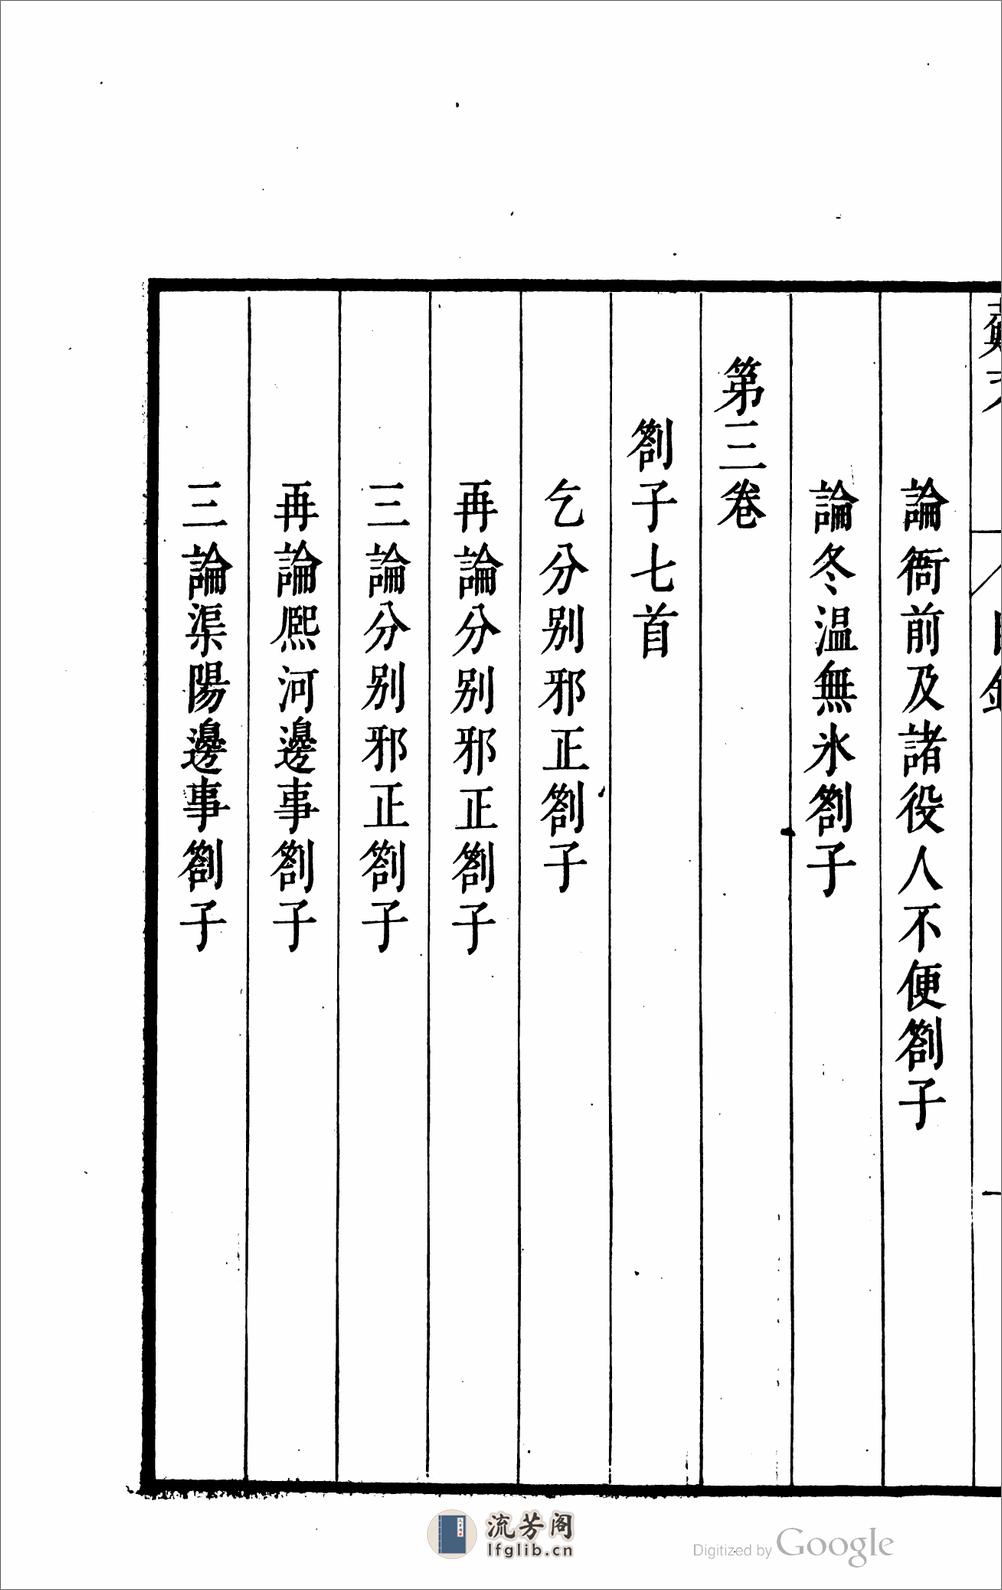 論衙前及諸役人不便劄子
論冬温無氷劄子
第三卷
劄子七首
乞分别邪正劄子
再論分别邪正劄子
三論分别邪正劄子
再論熈河邊事劄子
三論渠陽邊事劄子
流芳阁
lfglib.cn
Digitized by Google